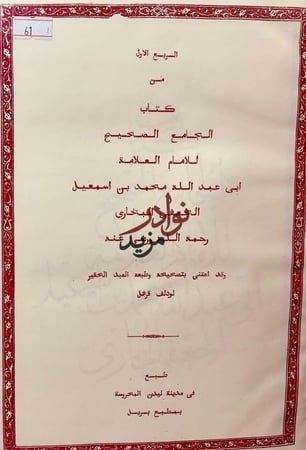 61
الربع الاول
من
كتاب
الجامع الصحيح
للامام العلامة
ابى عبد الله محمد بن اسمعيل
البخارى
رحمه الله عنه
نوادر
مزيد
وقد اعتنى بتصحيحه وطبعه العبد الحقير
لودلف قرهل
طبع
فى مدينة ليدن المحروسة
بمطبع بريل